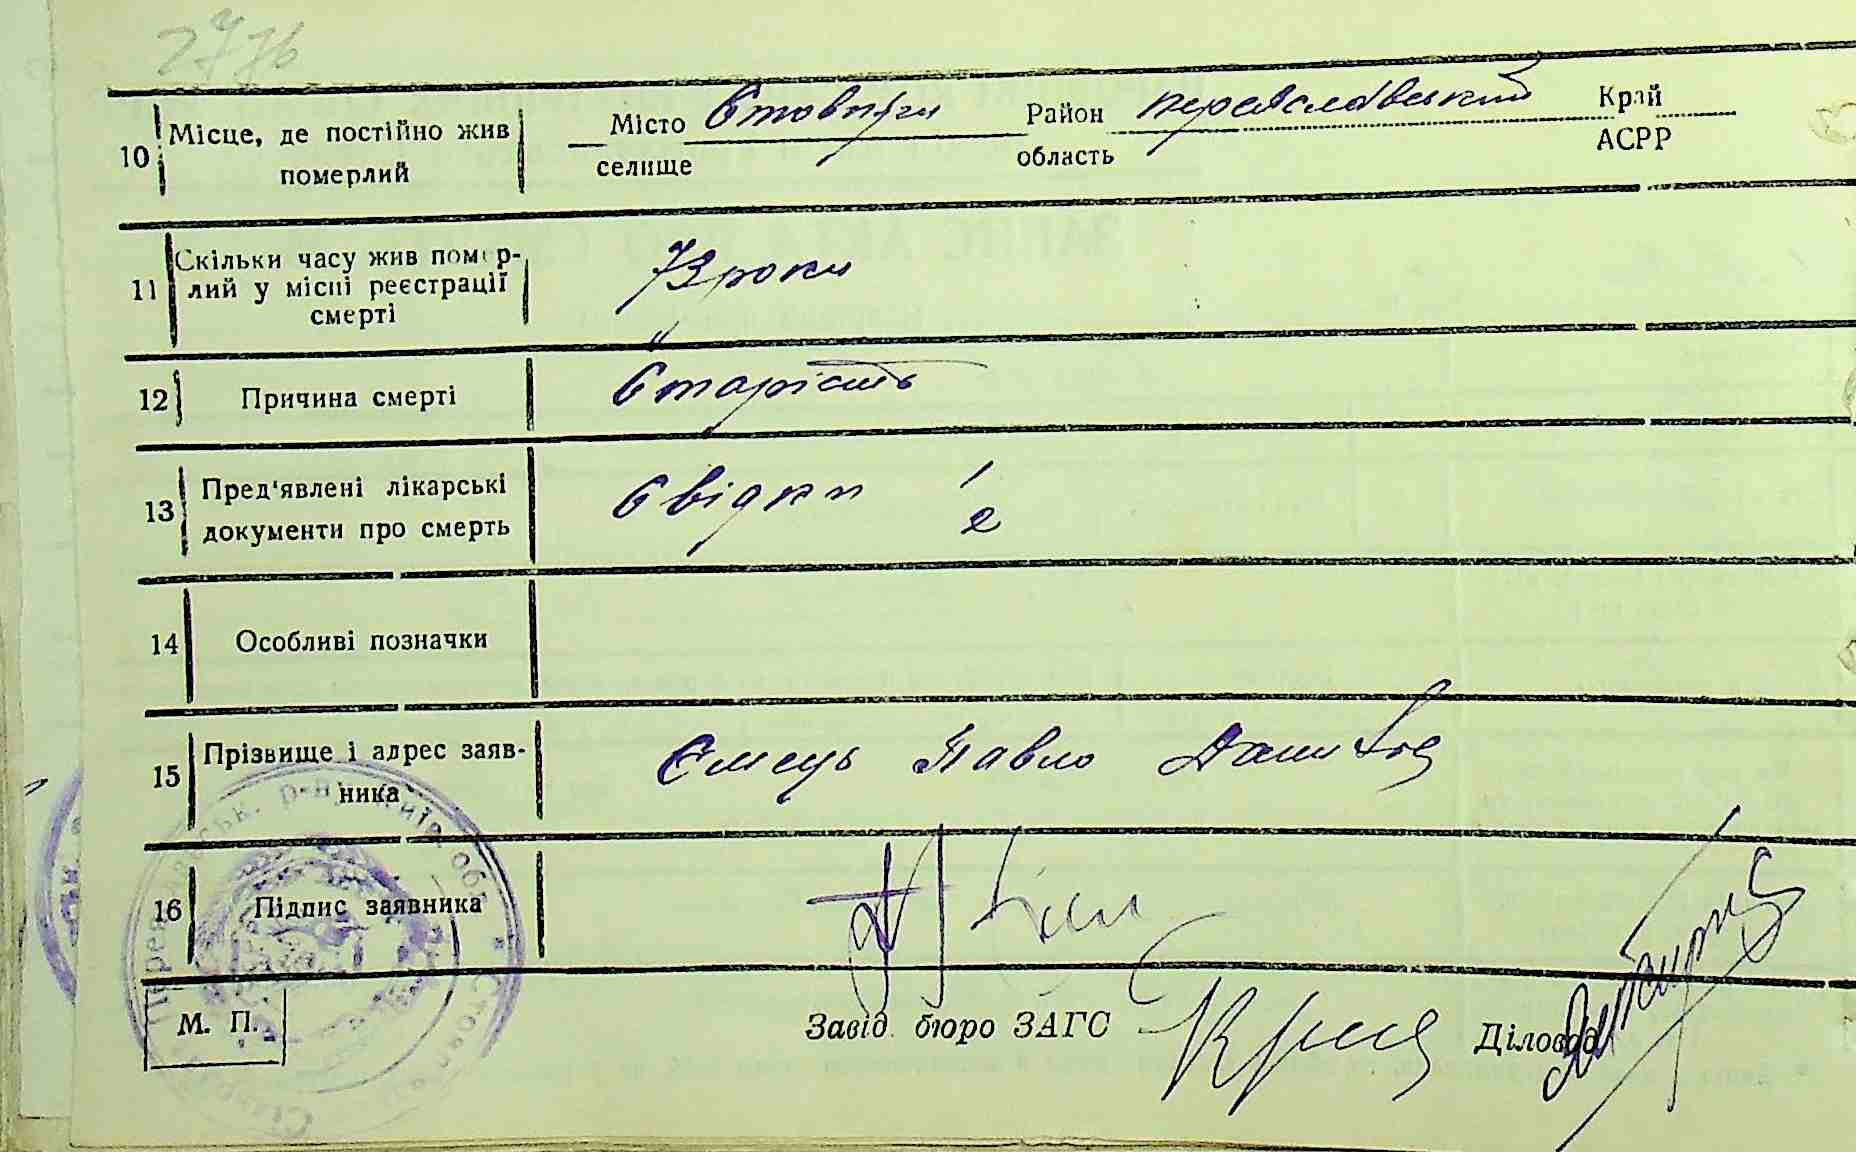 2776
10 Місце, де постійно жив
померлий
Місто Стовпяги Район переяславський Край
селище область АСРР
11 Скільки часу жив помер-
лий у місці реєстрації
смерті
73 роки
"
12 Причина смерті Старість
13 Пред'явлені лікарські
документи про смерть
Свідки 1
2
14 Особливі позначки
15 Прізвище і адрес заяв-
ника
Ємець Павло Данилов
16 Підпис заявника
М. П.
Завід. бюро ЗАГС
Діловод